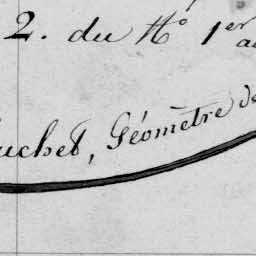 2. du N.º 1er au
uchet, Géomètre de